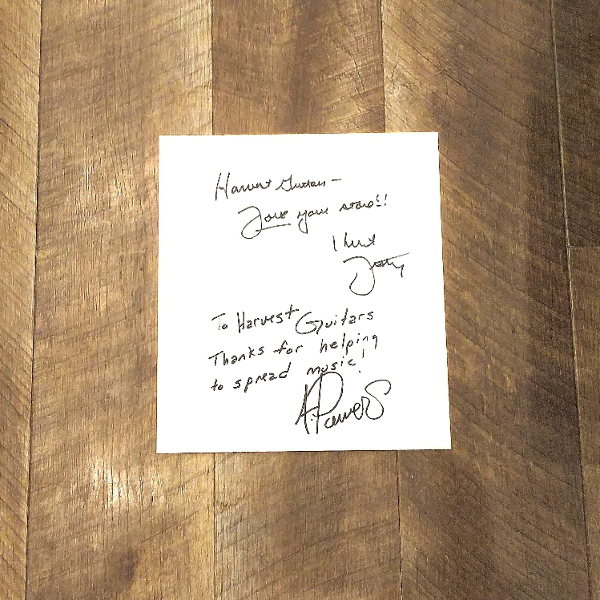 Harvest Guitars –
Love your store!!
To Harvest Guitars
Thanks for helping
to spread music!
A. Powers